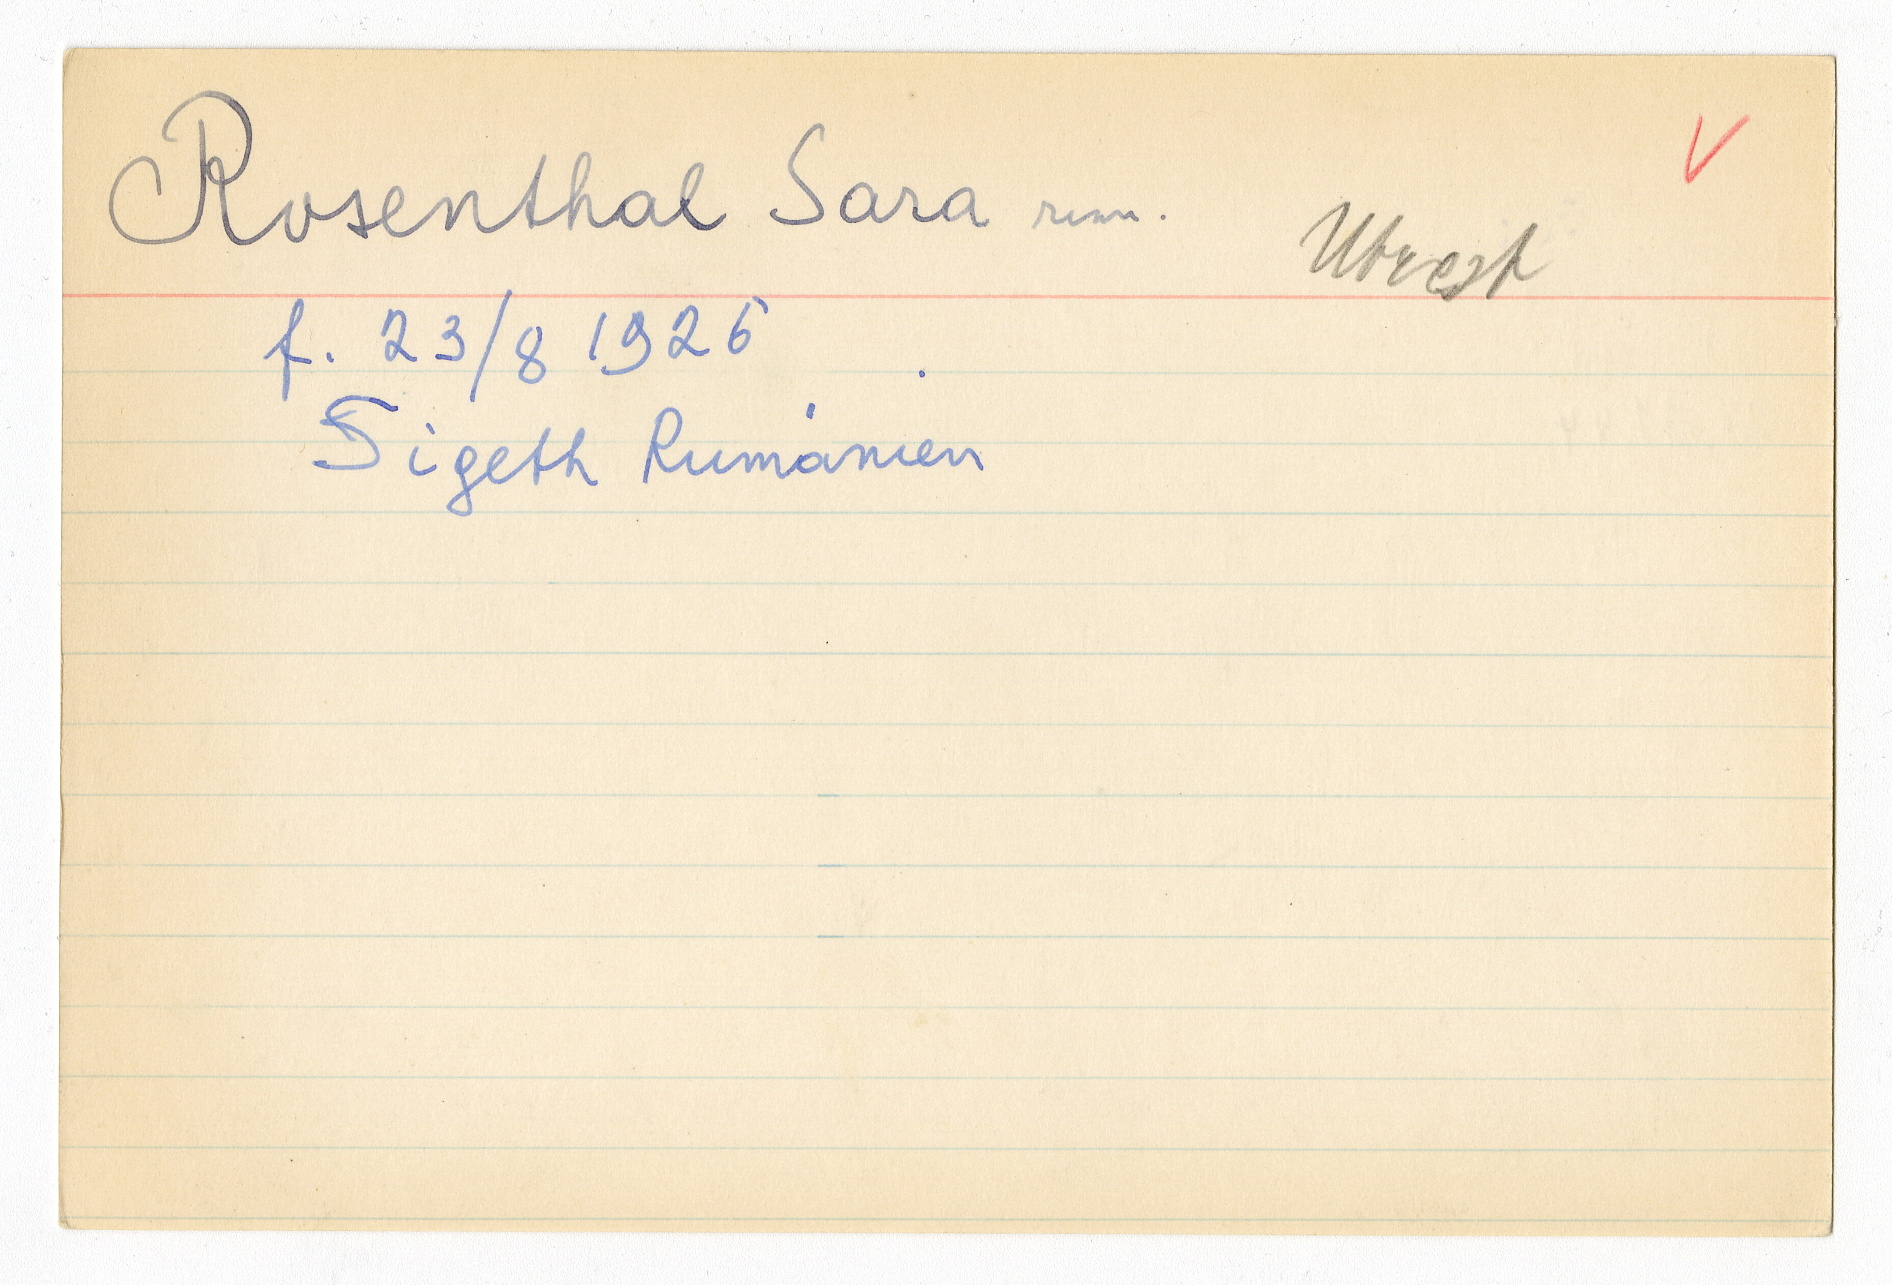 Rosenthal Sara rum.
Utrest
f. 23/8 1926
Sigeth Rumänien